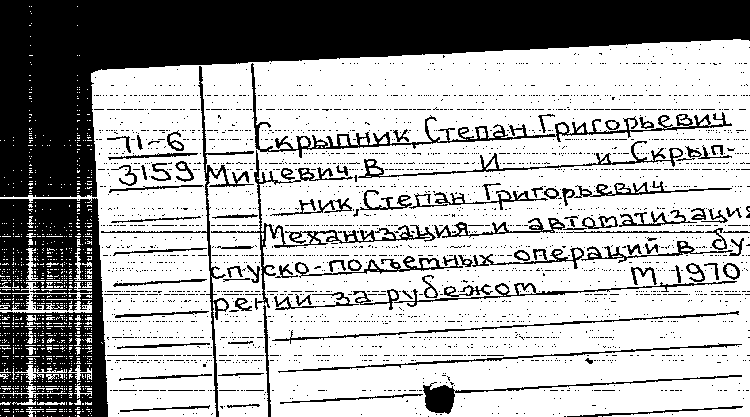 71-6 Скрыпник, Степан Григорьевич
3159 Мищевич, В И и Скрып-
ник, Степан Григорьевич
Механизация и автоматизация
спуско-подъемных операций в бу-
рении за рубежом М, 1970